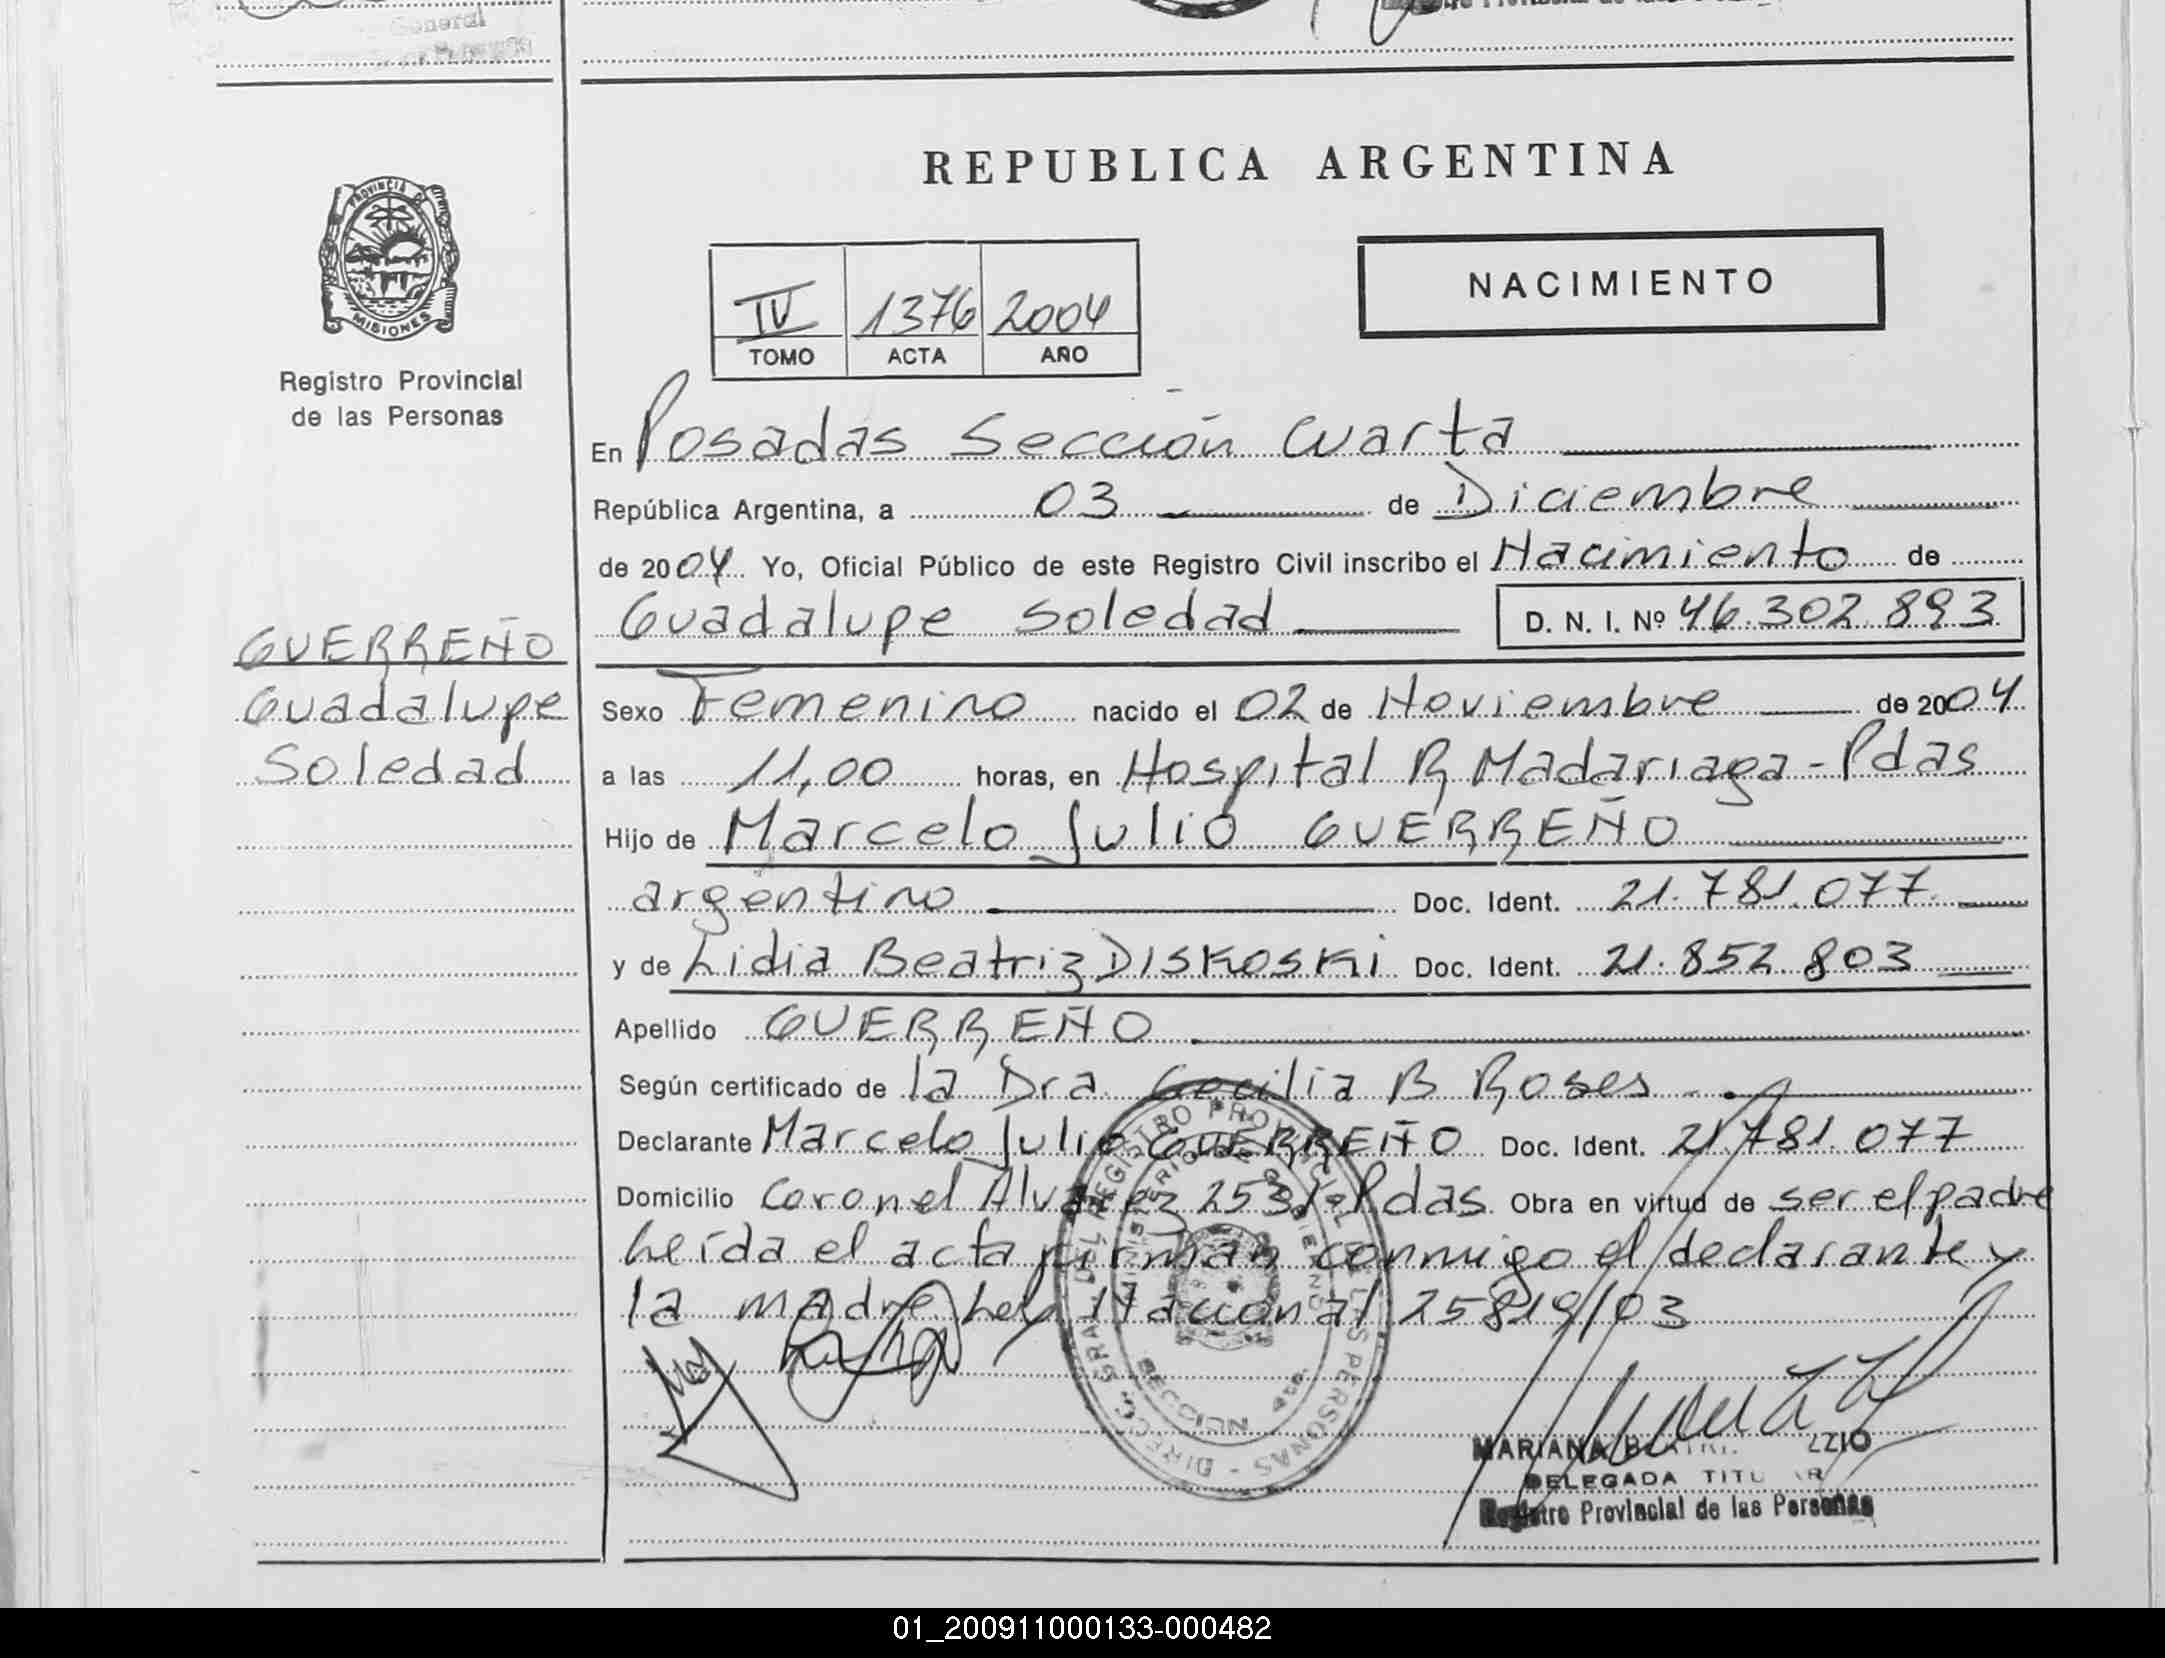 General
REPUBLICA ARGENTINA
PROVINCIA DE
MISIONES
NACIMIENTO
IV 1376 2004
TOMO ACTA AÑO
Registro Provincial
de las Personas
En Posadas Sección Cuarta
República Argentina, a 03 de Diciembre
de 2004 Yo, Oficial Público de este Registro Civil inscribo el Nacimiento de
Guadalupe Soledad D. N. I. Nº 46.302.893
GUERREÑO
Guadalupe
Soledad
Sexo Femenino nacido el 02 de Noviembre de 2004
a las 11,00 horas, en Hospital R Madariaga - Pdas
Hijo de Marcelo Julio GUERREÑO
argentino Doc. Ident. 21.781.077
y de Lidia Beatriz DISKOSKI Doc. Ident. 21.852.803
Apellido GUERREÑO
Según certificado de la Dra. Cecilia B Roses
Declarante Marcelo Julio GUERREÑO Doc. Ident. 21.781.077
Domicilio Coronel Alvarez 2531 Pdas Obra en virtud de ser el padre
Leída el acta firman conmigo el declarante y
la madre Ley Nacional 25819/03
DIRECC. GRAL. DEL REGISTRO PROVINCIAL DE LAS PERSONAS
MINISTERIO DE GOBIERNO
MARIANA
DELEGADA TITULAR
Registro Provincial de las Personas
01_200911000133-000482